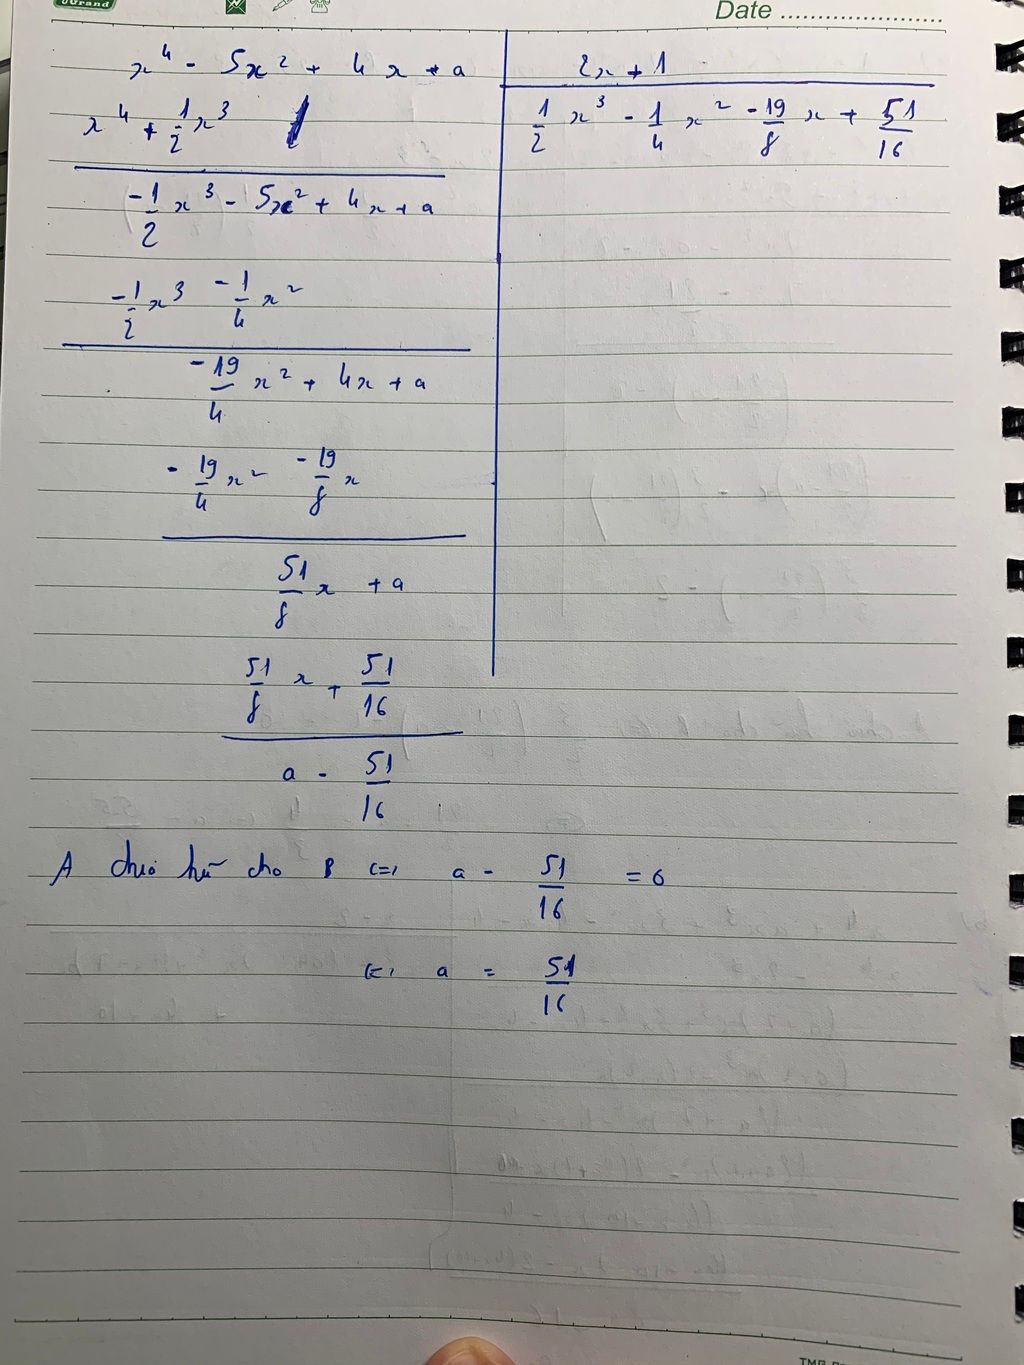 Grand
Date
x⁴ - 5x² + 4x + a | 2x + 1
x⁴ + 1/2 x³ | 1/2 x³ - 1/4 x² - 19/8 x + 51/16
-1/2 x³ - 5x² + 4x + a
-1/2 x³ - 1/4 x²
-19/4 x² + 4x + a
- 19/4 x² - 19/8 x
51/8 x + a
51/8 x + 51/16
a - 51/16
A chia hết cho B <=> a - 51/16 = 0
<=> a = 51/16